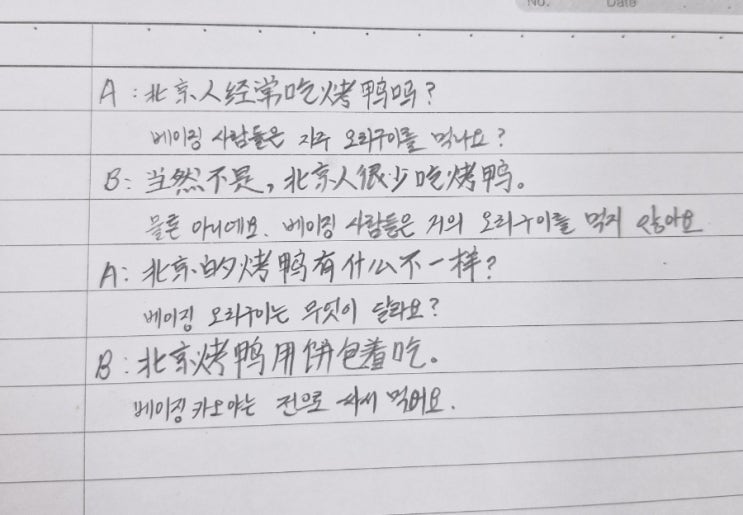 No. Date
A：北京人经常吃烤鸭吗？
베이징 사람들은 자주 오리구이를 먹나요?
B：当然不是，北京人很少吃烤鸭。
물론 아니예요. 베이징 사람들은 거의 오리구이를 먹지 않아요
A：北京的烤鸭有什么不一样？
베이징 오리구이는 무엇이 달라요?
B：北京烤鸭用饼包着吃。
베이징카오야는 전으로 싸서 먹어요.